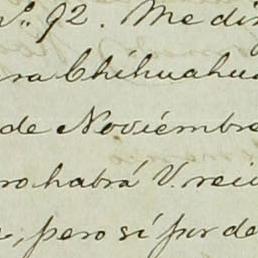 No. 92. Me di
ra Chihuahua
de Noviémbre
ro habrá V. reci
, pero sí por de